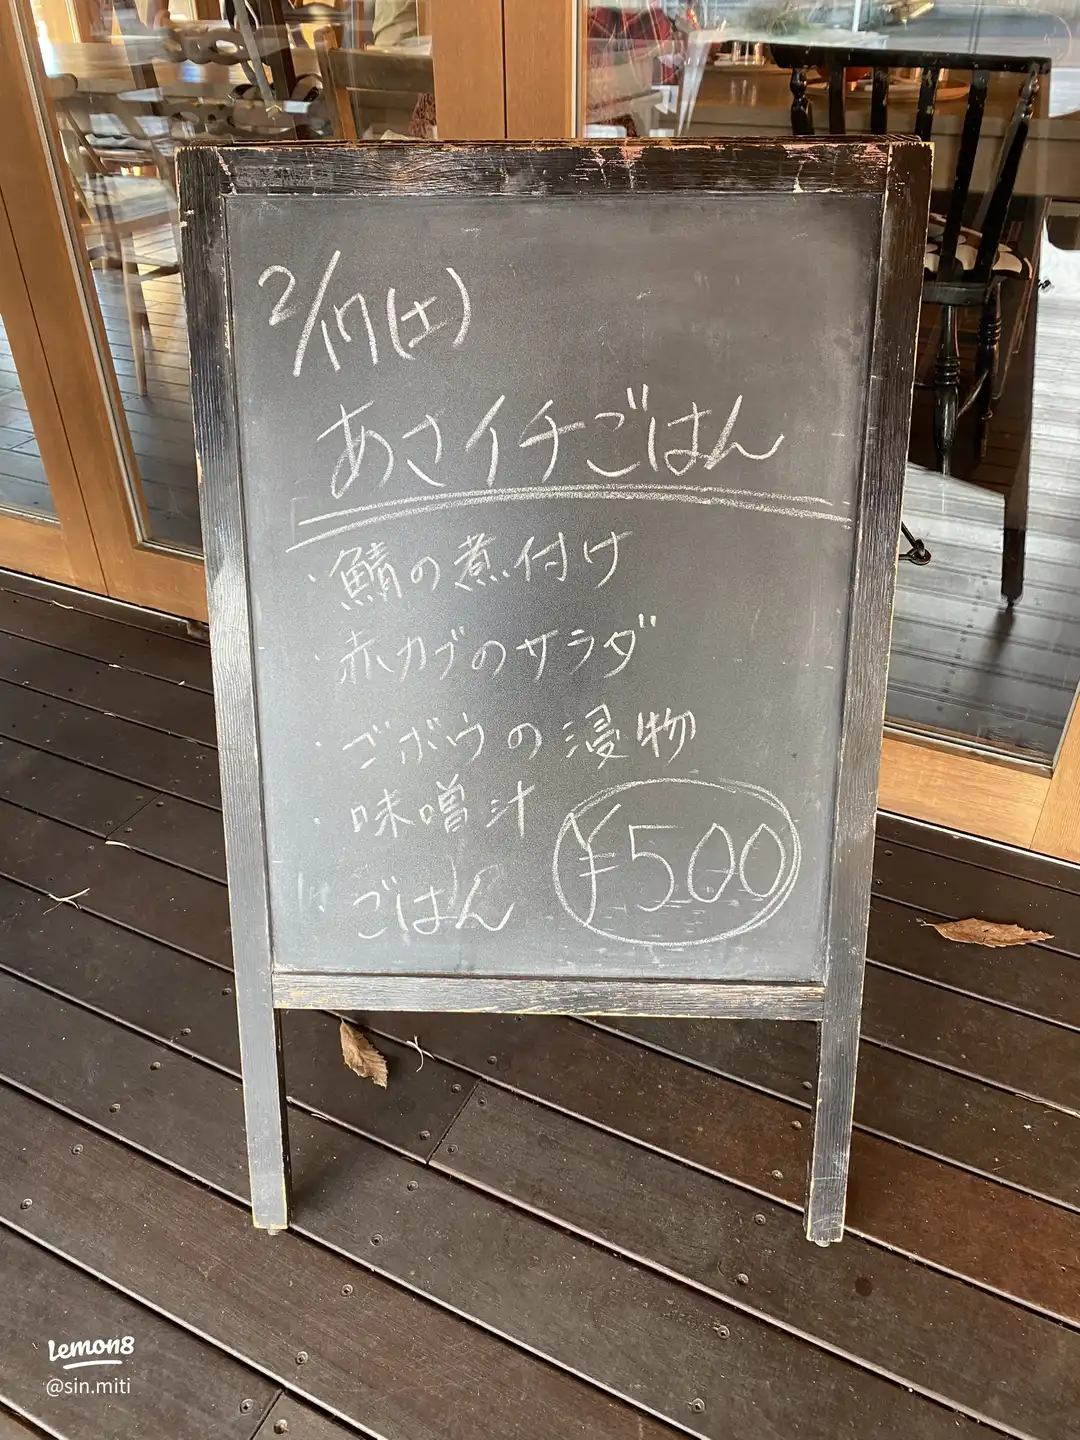 2/17(土)
あさイチごはん
・鯖の煮付け
・赤カブのサラダ
・ゴボウの浸物
・味噌汁
・ごはん
¥500
Lemon8
@sin.miti